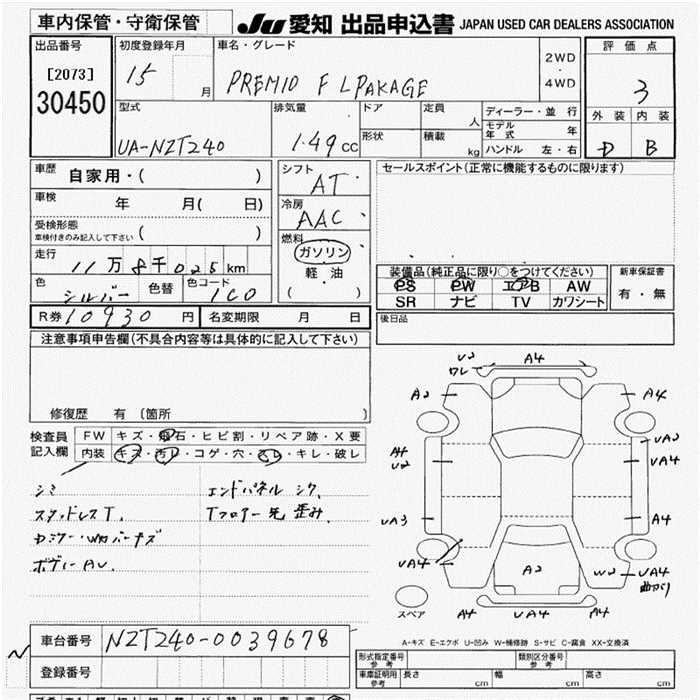 車内保管・守衛保管
JU 愛知 出品申込書 JAPAN USED CAR DEALERS ASSOCIATION
出品番号
[2073]
30450
初度登録年月
15 月
車名・グレード
PREMIO F LPAKAGE
2WD
・
4WD
評価点
3
外装 内装
D B
型式
UA-NZT240
排気量
1.49cc
ドア
形状
定員 人
積載 kg
ディーラー・並行
モデル年式 年
ハンドル 左・右
車歴
自家用・( )
車検 年 月( 日)
受検形態
車検付きのみ記入して下さい ( )
走行
11万8千025km
色 シルバー 色替 色コード 1C0
シフト
AT
冷房
AAC
燃料
ガソリン
軽・油
( )
セールスポイント(正常に機能するものに限ります)
装備品(純正品に限り○をつけてください)
PS PW エアB AW
SR ナビ TV カワシート
新車保証書
有・無
R券 10930 円 名変期限 月 日
後日品
注意事項申告欄(不具合内容等は具体的に記入して下さい)
修復歴 有 (箇所 )
検査員
記入欄
FW キズ・飛石・ヒビ割・リペア跡・X要
内装 キズ・汚レ・コゲ・穴・スレ・キレ・破レ
シミ
スタッドレスT.
ボディーAU.
エンドパネル シワ.
Tフロアー先 歪み.
U2
ワレ
A4
A2
A4
A4
U2
UA2
UA4
UA3
A4
UA4
A2
W2
UA4
曲がり
スペア
A4
UA4
A4
A-キズ E-エクボ U-凹み W-補修跡 S-サビ C-腐食 XX-交換済
車台番号 NZT240-0039678
登録番号
形式指定番号
参考
類別区分番号
参考
車庫証明用
参考
長さ cm 幅 cm 高さ cm